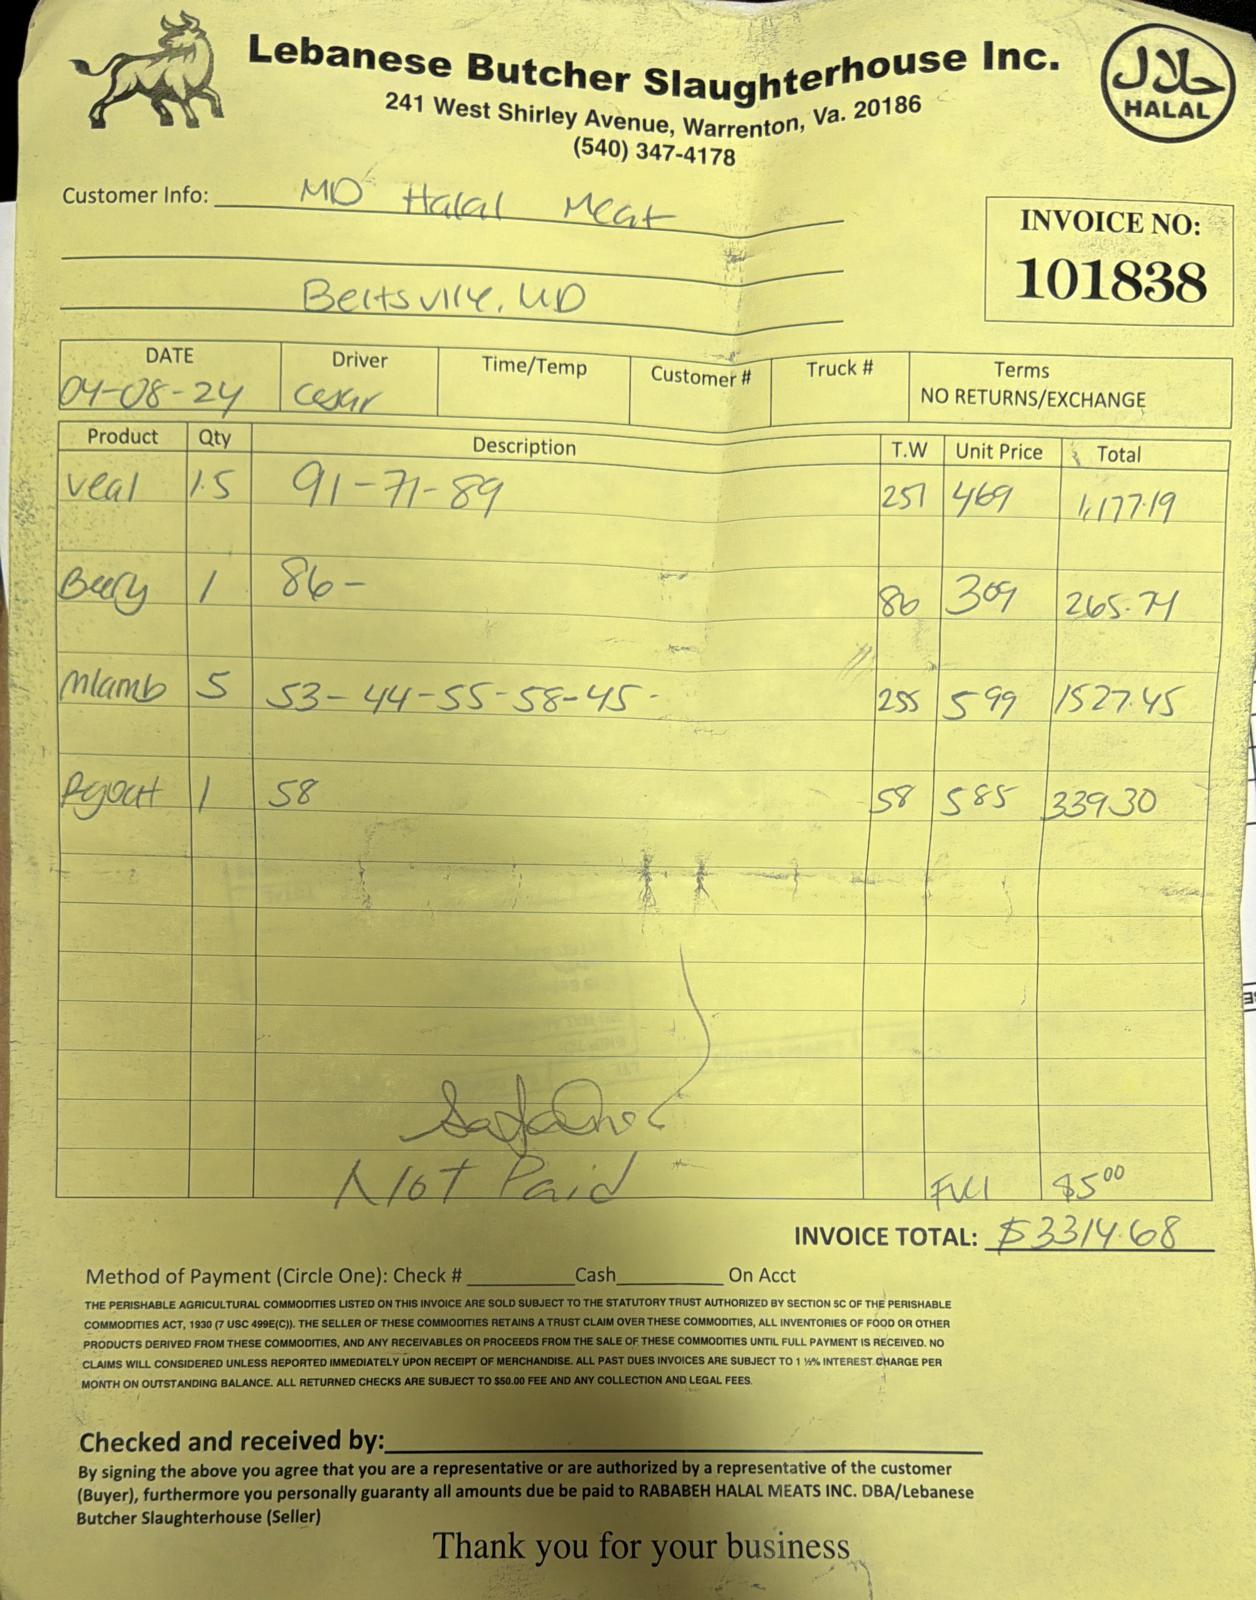 Lebanese Butcher Slaughterhouse Inc.
241 West Shirley Avenue, Warrenton, Va. 20186
(540) 347-4178
حلال
HALAL
Customer Info: MD Halal Meat
Beltsville, MD
INVOICE NO:
101838
DATE Driver Time/Temp Customer # Truck # Terms
04-08-24 Cesar NO RETURNS/EXCHANGE
Product Qty Description T.W Unit Price Total
veal 1.5 91-71-89 251 469 1,177.19
1 86- 86 309 265.74
Mlamb 5 53-44-55-58-45- 255 599 1527.45
Rgoat 1 58 58 585 339.30
Not Paid
$5.00
INVOICE TOTAL: $3314.68
Method of Payment (Circle One): Check # Cash On Acct
THE PERISHABLE AGRICULTURAL COMMODITIES LISTED ON THIS INVOICE ARE SOLD SUBJECT TO THE STATUTORY TRUST AUTHORIZED BY SECTION 5C OF THE PERISHABLE
COMMODITIES ACT, 1930 (7 USC 499E(C)). THE SELLER OF THESE COMMODITIES RETAINS A TRUST CLAIM OVER THESE COMMODITIES, ALL INVENTORIES OF FOOD OR OTHER
PRODUCTS DERIVED FROM THESE COMMODITIES, AND ANY RECEIVABLES OR PROCEEDS FROM THE SALE OF THESE COMMODITIES UNTIL FULL PAYMENT IS RECEIVED. NO
CLAIMS WILL CONSIDERED UNLESS REPORTED IMMEDIATELY UPON RECEIPT OF MERCHANDISE. ALL PAST DUES INVOICES ARE SUBJECT TO 1 ½% INTEREST CHARGE PER
MONTH ON OUTSTANDING BALANCE. ALL RETURNED CHECKS ARE SUBJECT TO $50.00 FEE AND ANY COLLECTION AND LEGAL FEES.
Checked and received by:
By signing the above you agree that you are a representative or are authorized by a representative of the customer
(Buyer), furthermore you personally guaranty all amounts due be paid to RABABEH HALAL MEATS INC. DBA/Lebanese
Butcher Slaughterhouse (Seller)
Thank you for your business